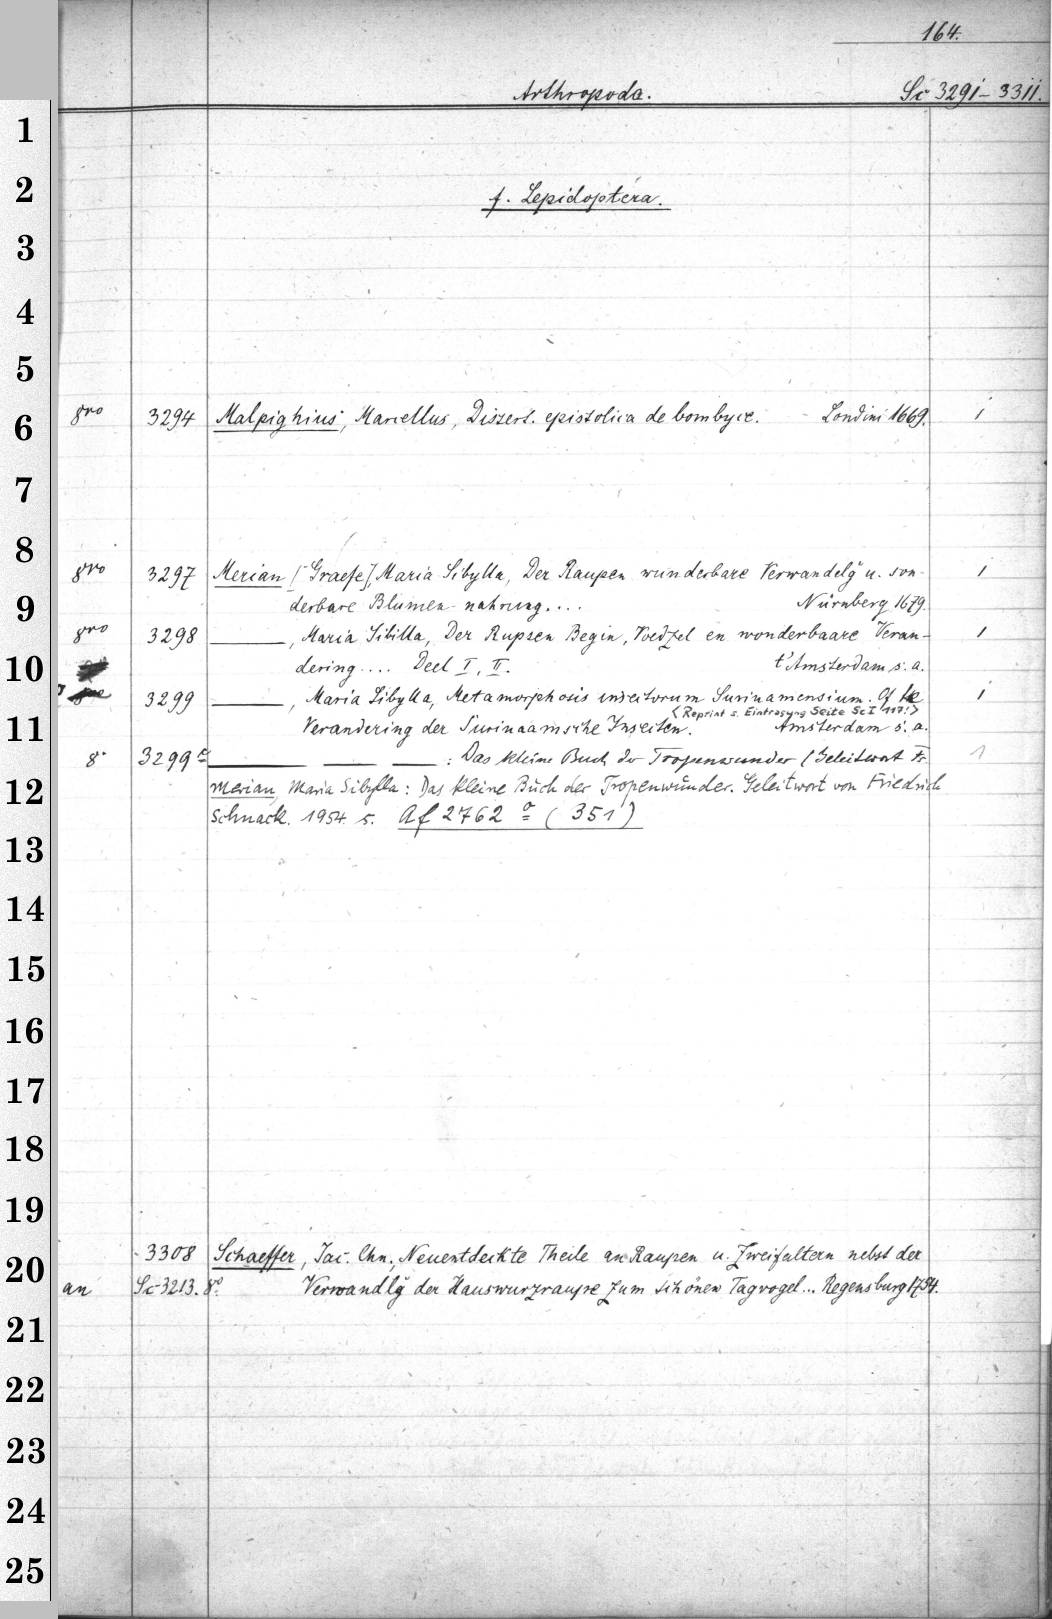 164.
Arthropoda. Sc 3291-3311.
1
2
f. Lepidoptera.
3
4
5
6
8vo 3294 Malpighius, Marcellus, Dissert. epistolica de bombyce. Londini 1669. 1
7
8
8vo 3297 Merian [-Graefe], Maria Sibylla, Der Raupen wunderbare Verwandelg u. son-
9
derbare Blumen-nahrung.... Nürnberg 1679. 1
8vo 3298 ———, Maria Sibilla, Der Rupsen Begin, Voedzel en wonderbaare Veran- 1
10
dering.... Deel I, II. t'Amsterdam s. a.
3299 ———, Maria Sibylla, Metamorphosis insectorum Surinamensium. Of te 1
<Reprint s. Eintragung Seite Sc I 117!>
11
Verandering der Surinaamsche Insecten. Amsterdam s. a.
8° 3299a ——— —— ——: Das kleine Buch der Tropenwunder (Geleitwort Fr. 1
12
Merian, Maria Sibylla: Das kleine Buch der Tropenwunder. Geleitwort von Friedrich
Schnack. 1954. s. Af 2762 a (351)
13
14
15
16
17
18
19
20
3308 Schaeffer, Jac. Chn., Neuentdeckte Theile an Raupen u. Zweifaltern nebst der
an Sc 3213. 8° Verwandlg der Hauswurzraupe zum schönen Tagvogel... Regensburg 1754.
21
22
23
24
25